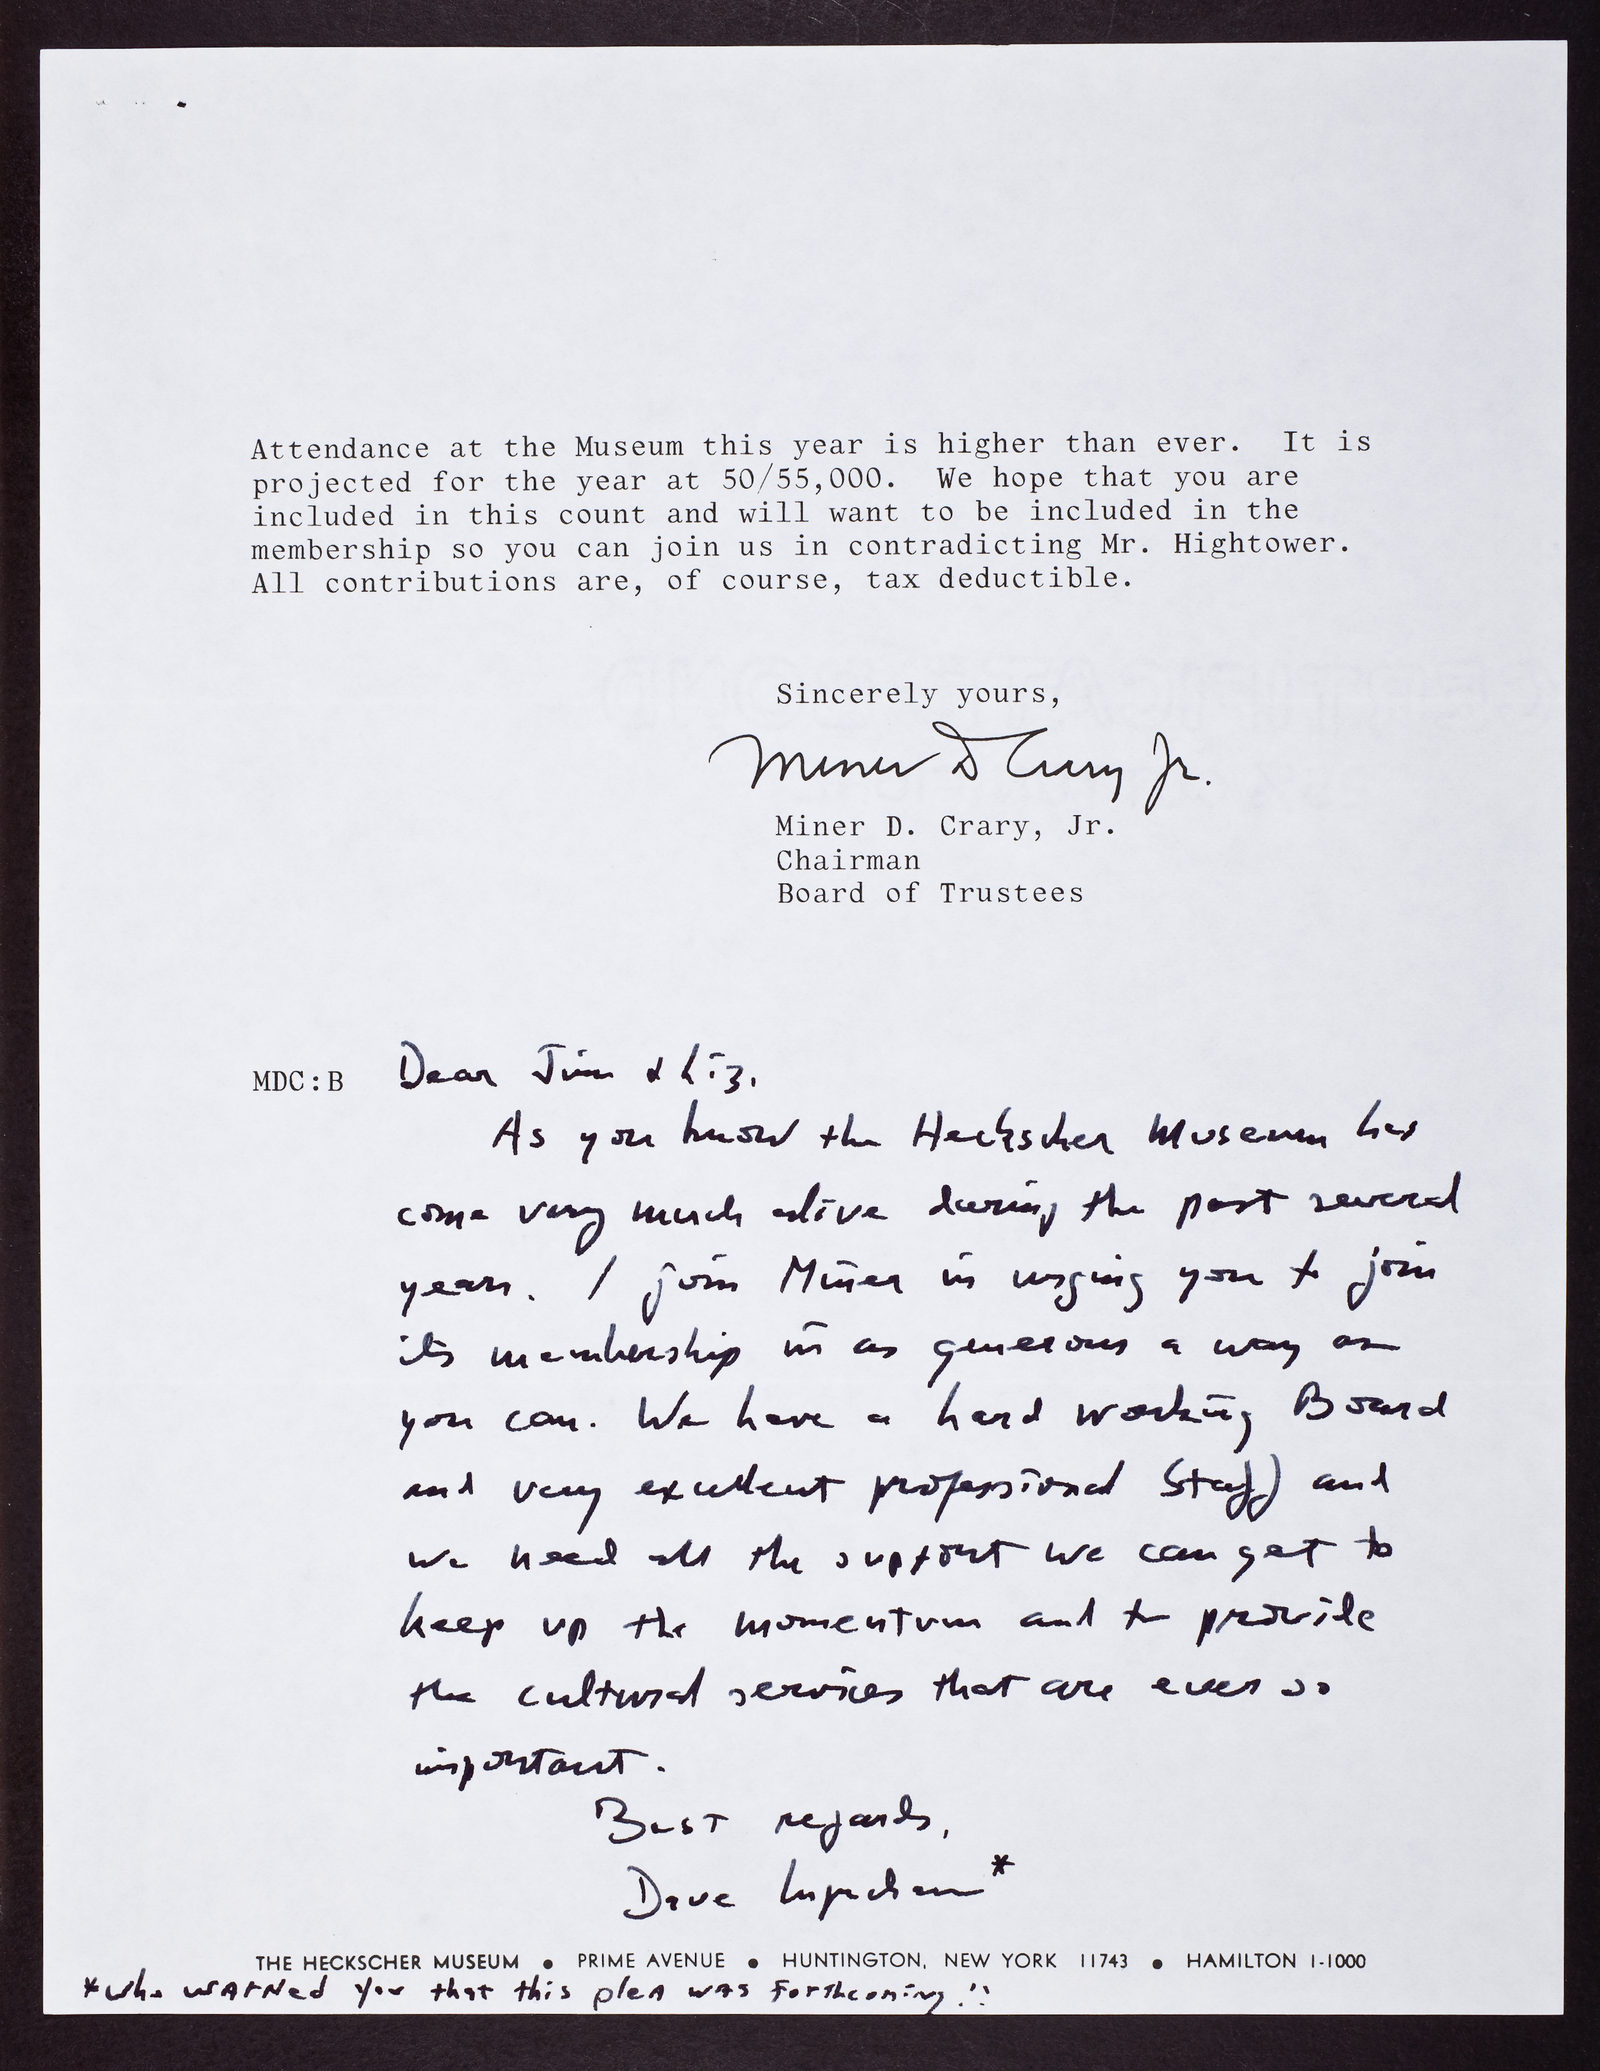 Attendance at the Museum this year is higher than ever. It is
projected for the year at 50/55,000. We hope that you are
included in this count and will want to be included in the
membership so you can join us in contradicting Mr. Hightower.
All contributions are, of course, tax deductible.
Sincerely yours,
Miner D Crary Jr.
Miner D. Crary, Jr.
Chairman
Board of Trustees
MDC:B
Dear Jim & Liz,
As you know the Heckscher Museum has
come very much alive during the past several
years. I join Miner in urging you to join
its membership in as generous a way as
you can. We have a hard working Board
and very excellent professional Staff and
we need all the support we can get to
keep up the momentum and to provide
the cultural services that are ever so
important.
Best regards,
Dave *
THE HECKSCHER MUSEUM • PRIME AVENUE • HUNTINGTON, NEW YORK 11743 • HAMILTON 1-1000
*who warned you that this plea was forthcoming!!